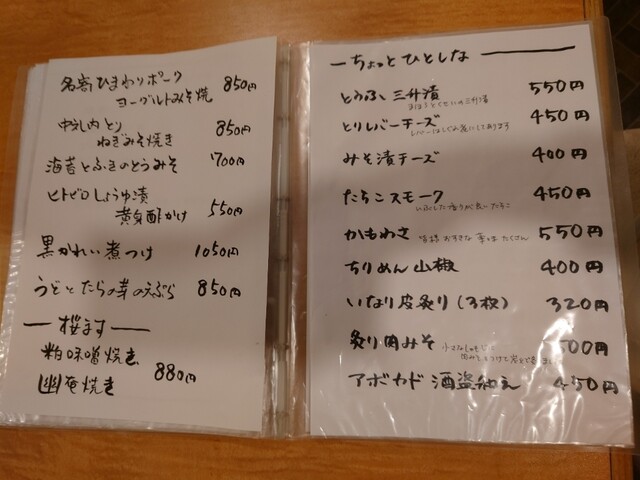 名寄ひまわりポーク
ヨーグルトみそ焼 850円
ねぎみそ焼き 850円
海苔とふきのとうみそ 700円
ヒトビロしょうゆ漬
黄身酢かけ 550円
黒かれい煮つけ 1050円
うどとたらの芽の天ぷら 850円
桜ます
粕味噌焼き
幽庵焼き 880円
ちょっとひとしな
とうふ 三升漬 550円
とりレバーチーズ 450円
みそ漬チーズ 400円
たらこスモーク 450円
かもわさ 550円
ちりめん山椒 400円
いなり皮炙り(3枚) 320円
炙り肉みそ 500円
アボカド 酒盗和え 450円